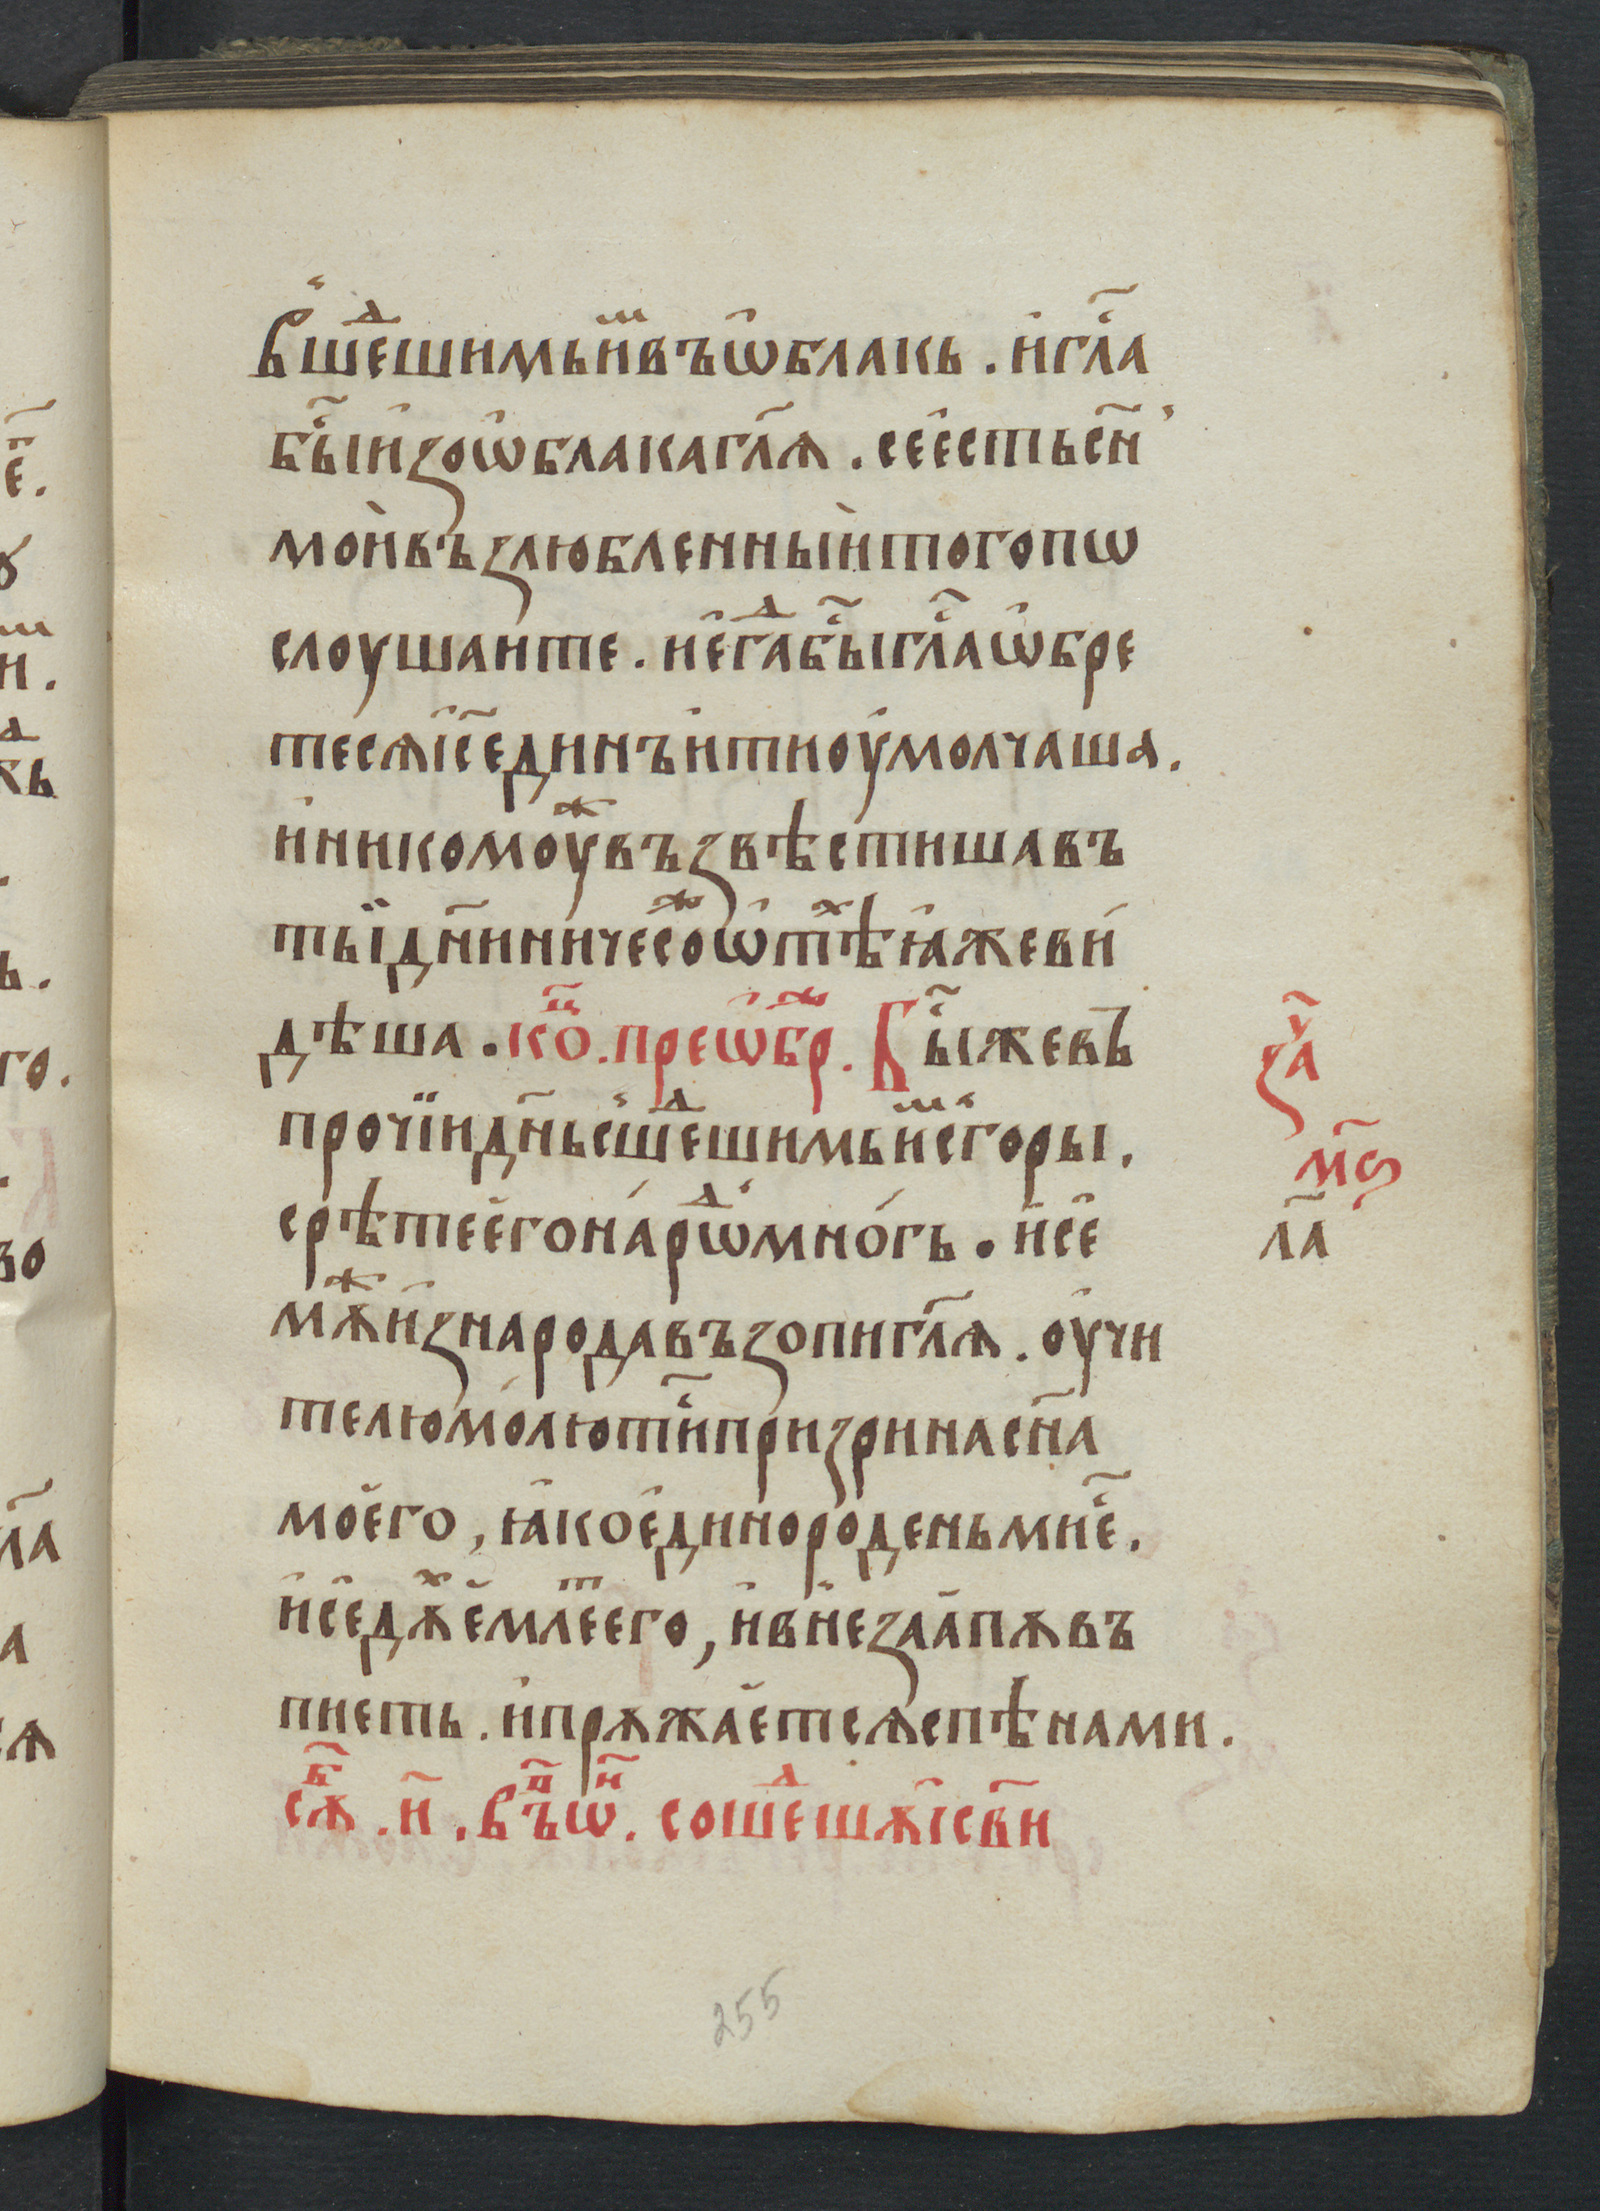 вшеⷣшимъиⷨвъѡблакъ . и҆гл҃а
бы҇ⷭизоѡблакагл҃ѧ . сее҆стьсн҃ъ
мои҆възлюбленныи҆тогопѡ
слоушаите . и҆е҆гдⷣабы҇ⷭгл҃аѡ҆бре
тесѧі҆с҃единъи҆тиоу҆молчаша .
и҆никомоуⷤвъзвѣстишавъ
тыїдн҃иничесоⷤѿтѣⷯꙗ҆жеви
дѣша . коⷩ҇ . преѡ҆брⷤ . бы҇ⷭжевъ
прочїидн҃ьсшеⷣшимъиⷨсгоры .
срѣтеегона́рѡⷣмно́гъ . и҆се
мѫⷤи҆знародавъзопигл҃ѧ . оу҆чи
телюмолютиⷭ҇призринасн҃а
моего , ꙗ҆коединороденьмиеⷭ҇ .
и҆седх҃ъемлеⷮего , и҆внезаапѫвъ
пиеть . и҆прѧжаетсѧспѣнами .
сѫⷠ҇ . и҃ . въⷫ҇ѡⷩ҇ . сошеⷣшѫі҆св҃и
за҇ⷱ
мѕ҃
ла҃
255